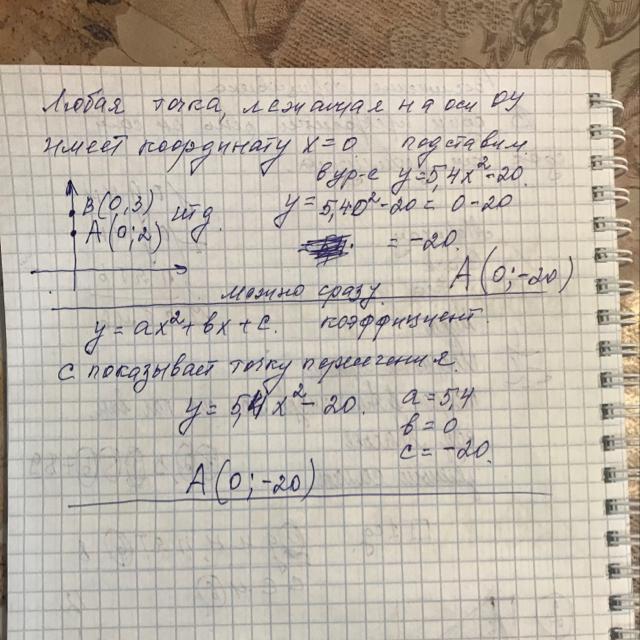 Любая точка, лежащая на оси ОУ
имеет координату x=0 подставим
в ур-е y=5,4x²-20.
B(0,3) итд. y= 5,4·0²-20= 0-20
A(0;2)
= -20.
A(0;-20)
можно сразу.
y=ax²+вx+c. коэффициент.
С показывает точку пересечения.
y=5,4x²-20. a=5,4
в=0
c=-20.
A(0;-20)